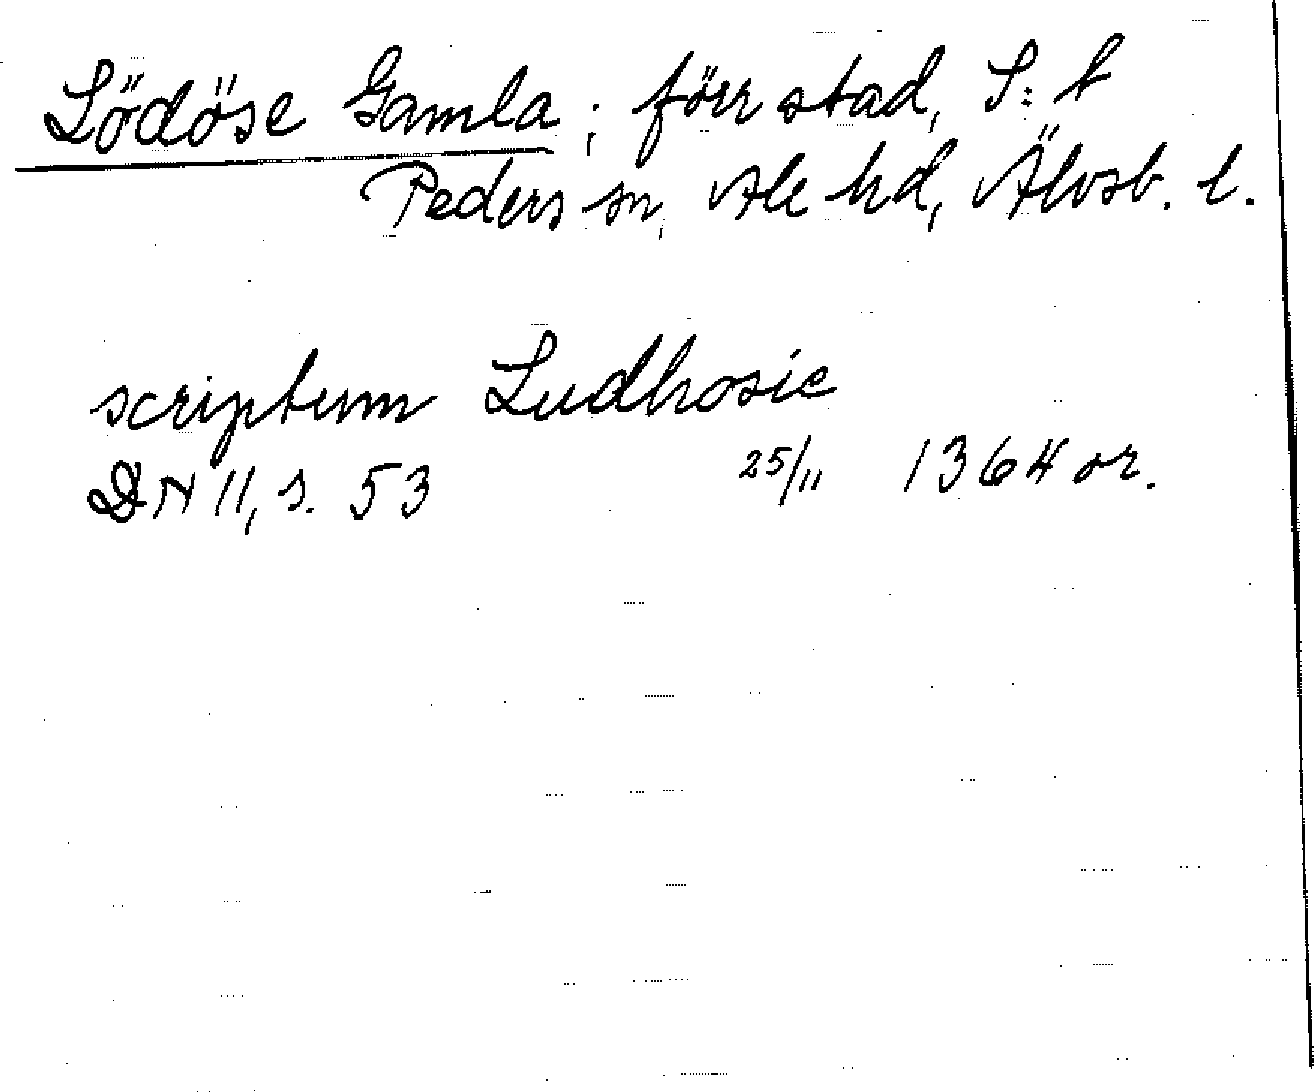 Lödöse Gamla; förr stad, S:t
Peders sn, Ale hd, Älvsb. l.
scriptum Ludhosie
DN II, s. 53 25/11 1364 or.